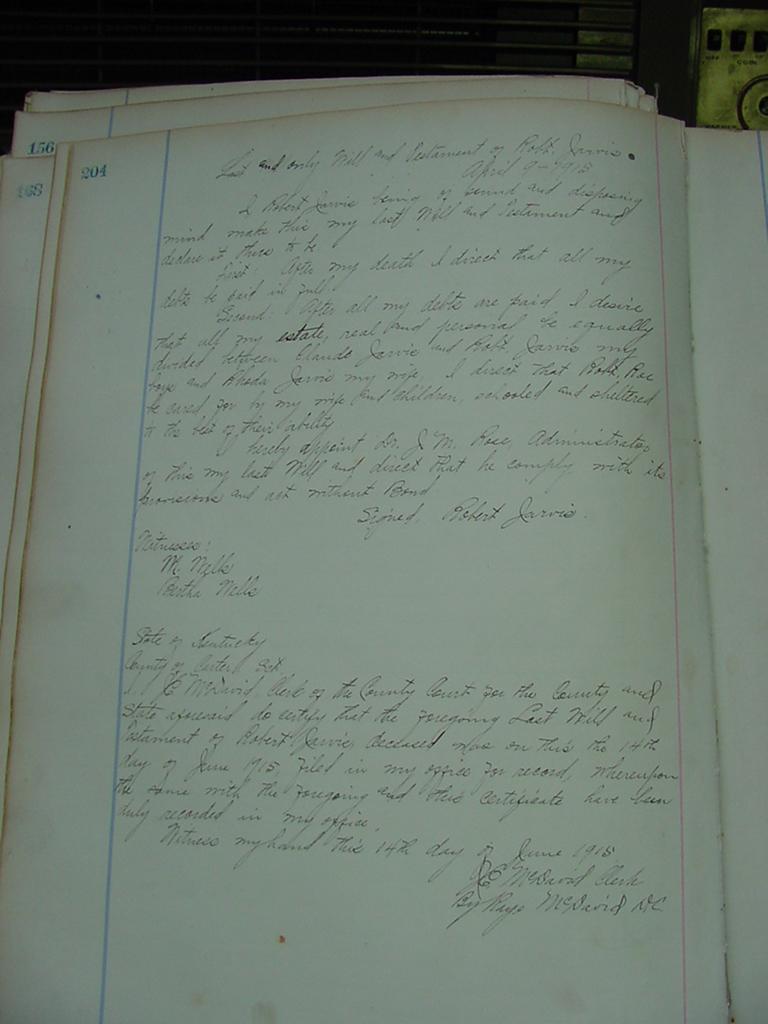 156
168
204
Last and only Will and Testament of Robt. Jarvis.
April 9-1915
I Robert Jarvis being of sound and disposing
mind make this my last Will and Testament and
declare it thus to be
first: After my death I direct that all my
debts be paid in full.
Second: After all my debts are paid I desire
that all my estate, real and personal be equally
divided between Claude Jarvis and Robt. Jarvis my
boys and Rhoda Jarvis my wife, I direct that Robt. Rae
be cared for by my wife and children, schooled and sheltered
to the best of their ability
hereby appoint Dr. J. M. Rose, Administrator
of this my last Will and direct that he comply with its
provisions and act without Bond
Signed, Robert Jarvis.
Witnesses:
M. Wells
Bertha Wells
State of Kentucky
County of Carter, Sct.
I, J E McDavid, Clerk of the County Court for the County and
State aforesaid do certify that the foregoing Last Will and
Testament of Robert Jarvis, deceased was on this the 14th
day of June 1915, filed in my office for record, whereupon
the same with the foregoing and this certificate have been
duly recorded in my office,
Witness my hand this 14th day of June 1915
J E McDavid Clerk
By McDavid DC